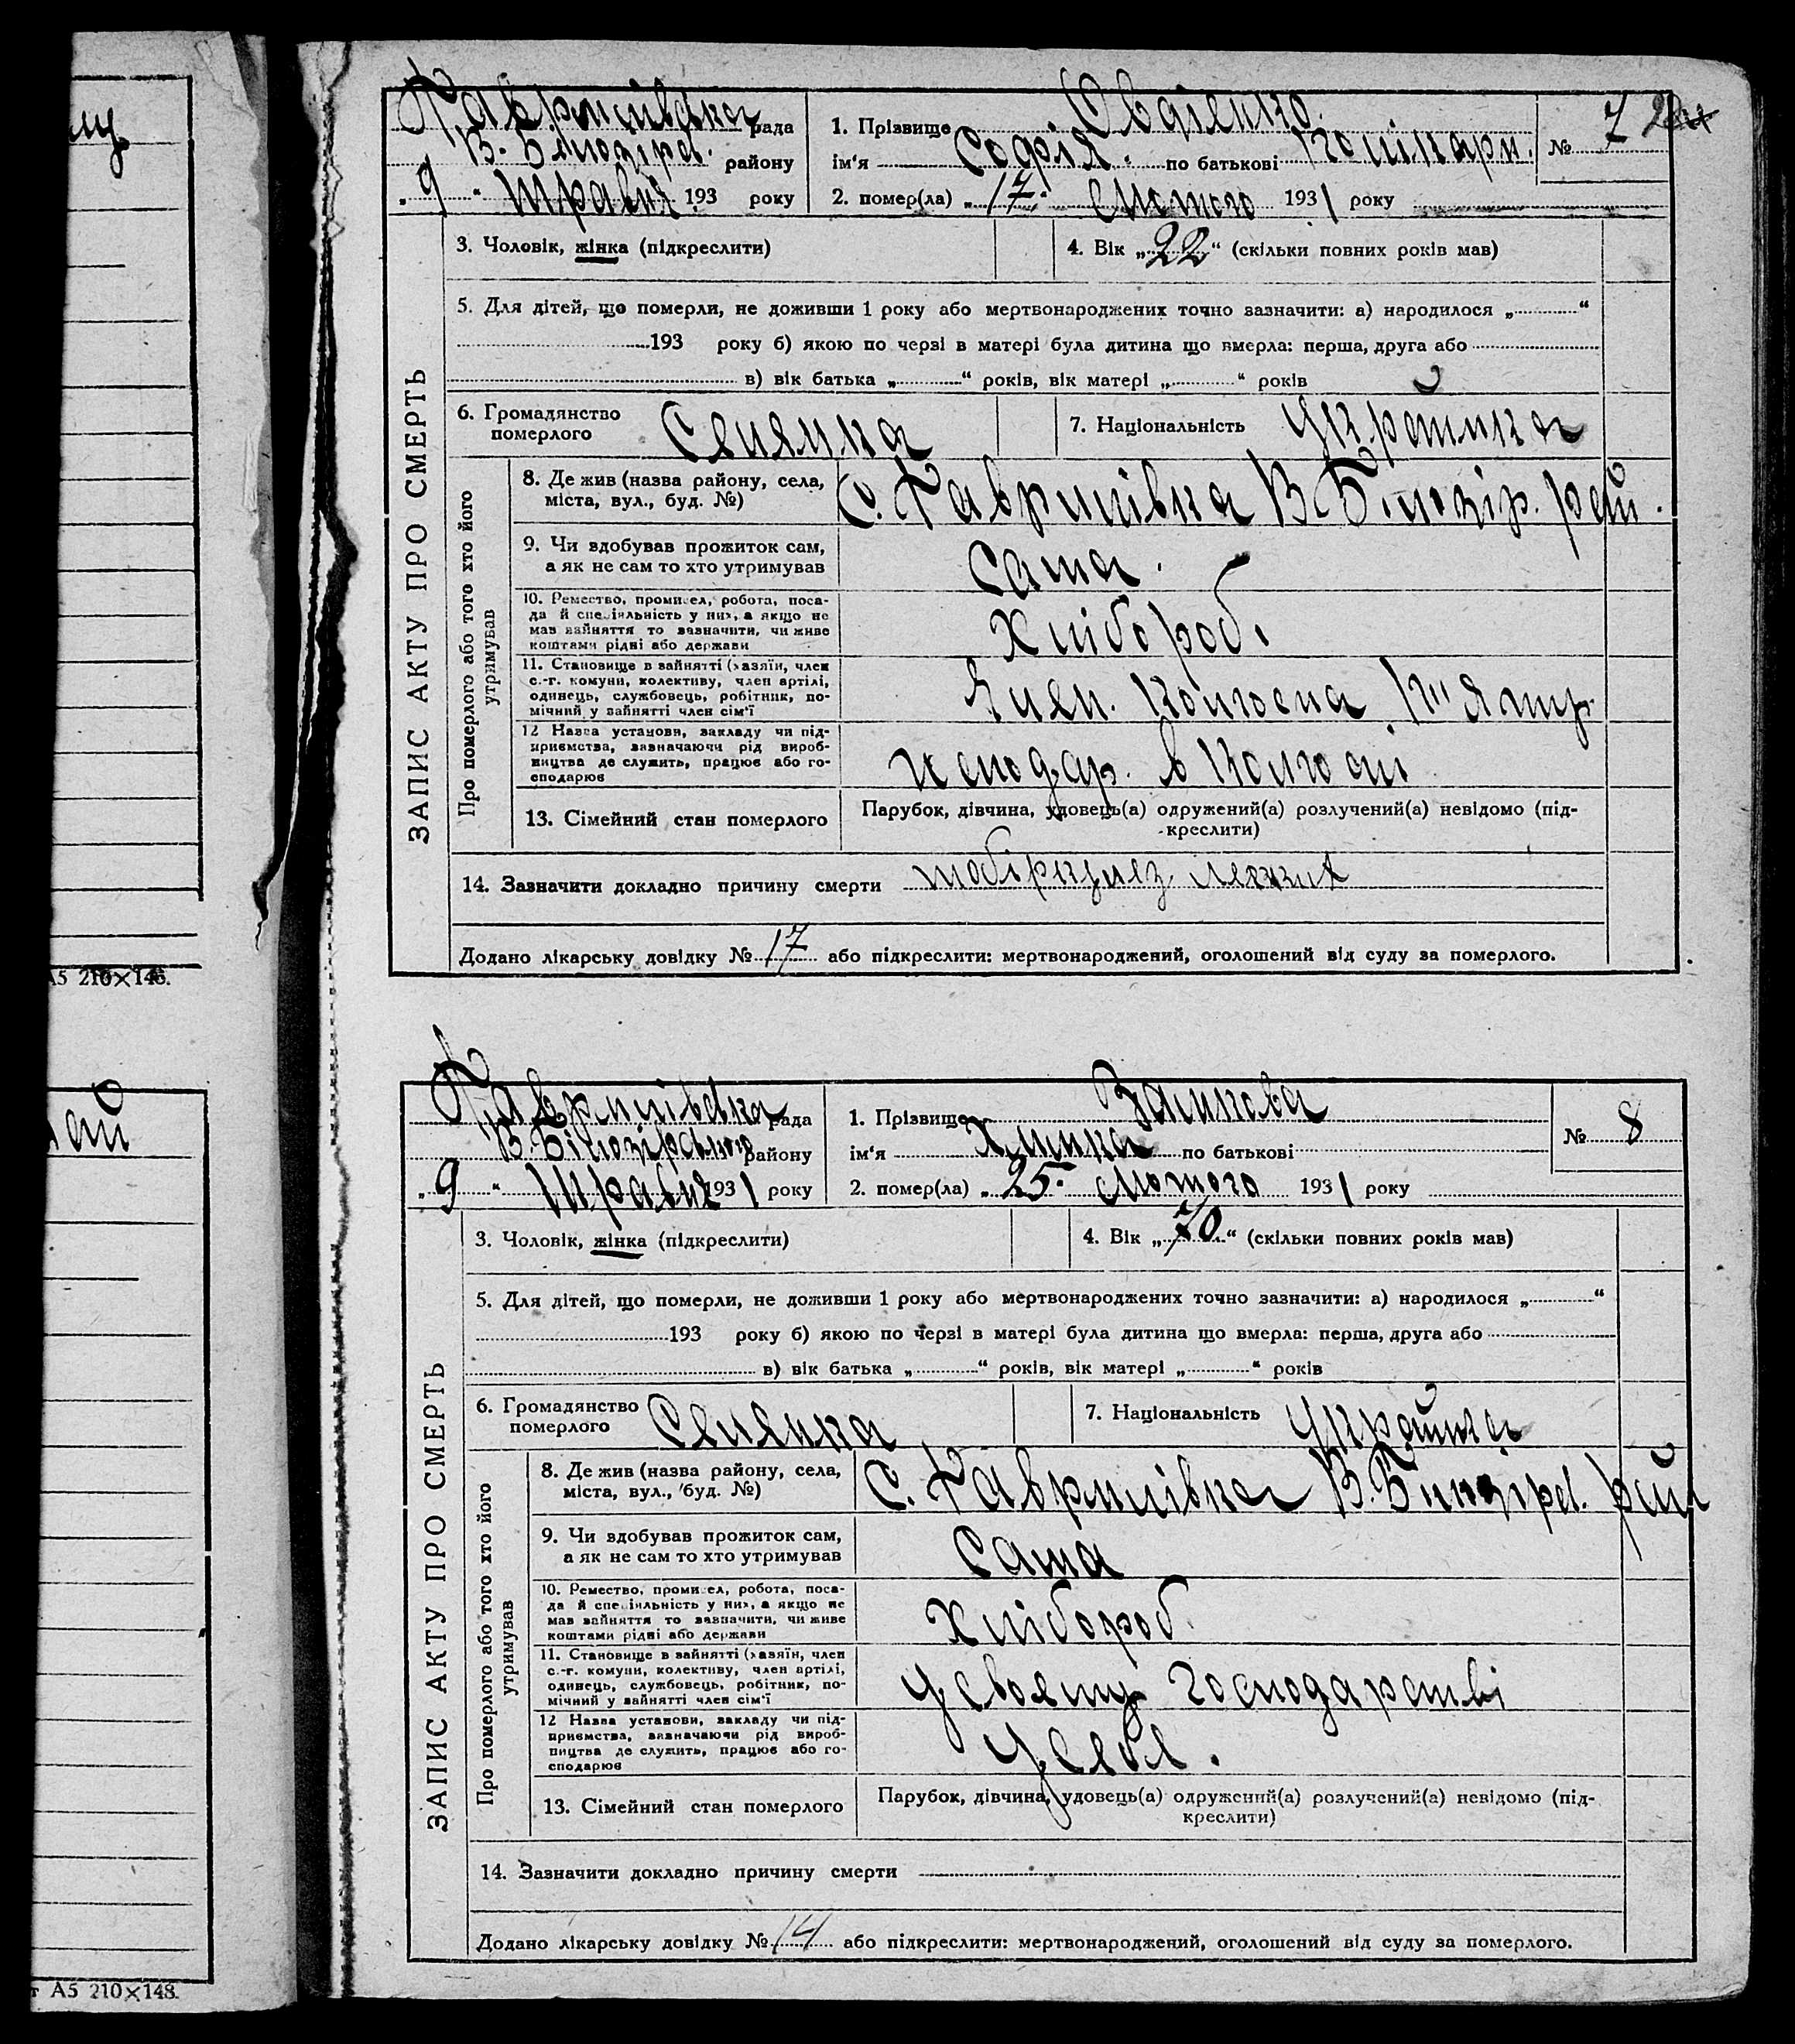 лщ
А5 210×148.
ай
т А5 210×148.
ЗАПИС АКТУ ПРО СМЕРТЬ
Гаврилівська рада
В. Білозірсь. району
„ 9 “ Травня 193 року
1. Прізвище Овдієнко
ім‘я Софія по батькові
2. помер(ла) „ 17 “ Лютого 1931 року
№ 7
3. Чоловік, жінка (підкреслити)
4. Вік „ 22 “ (скільки повних років мав)
5. Для дітей, що померли, не доживши 1 року або мертвонароджених точно зазначити: а) народилося „ “
193 року б) якою по черзі в матері була дитина що вмерла: перша, друга або
в) вік батька „ “ років, вік матері „ “ років
6. Громадянство померлого Селянка
7. Національність Українка
Про померлого або того хто його утримував
8. Де жив (назва району, села, міста, вул., буд. №) С. Гаврилівка В. Білозір. рай.
9. Чи здобував прожиток сам, а як не сам то хто утримував Сама.
10. Ремество, промисел, робота, поса-
да й спеціяльність у них, а якщо не
мав зайняття то зазначити, чи живе
коштами рідні або держави Хлібороб.
11. Становище в зайнятті (хазяїн, член
с.-г. комуни, колективу, член артілі,
одинець, службовець, робітник, по-
мічний у зайнятті член сім‘ї Член. колгоспа
12 Назва установи, закладу чи під-
приємства, зазначаючи рід вироб-
ництва де служить, працює або го-
сподарює господар. в колгоспі
13. Сімейний стан померлого Парубок, дівчина, удовець(а) одружений(а) розлучений(а) невідомо (під-
креслити)
14. Зазначити докладно причину смерти тобіркульз легких
Додано лікарську довідку № 17 або підкреслити: мертвонароджений, оголошений від суду за померлого.
ЗАПИС АКТУ ПРО СМЕРТЬ
Гаврилівська рада
В. Білозірського району
„ 9 “ Травня 1931 року
1. Прізвище
ім‘я по батькові
2. помер(ла) „ 25 “ Лютого 1931 року
№ 8
3. Чоловік, жінка (підкреслити)
4. Вік „ 70 “ (скільки повних років мав)
5. Для дітей, що померли, не доживши 1 року або мертвонароджених точно зазначити: а) народилося „ “
193 року б) якою по черзі в матері була дитина що вмерла: перша, друга або
в) вік батька „ “ років, вік матері „ “ років
6. Громадянство померлого Селянка
7. Національність Українка
Про померлого або того хто його утримував
8. Де жив (назва району, села, міста, вул., буд. №) С. Гаврилівка В. Білозірсь. рай
9. Чи здобував прожиток сам, а як не сам то хто утримував Сама
10. Ремество, промисел, робота, поса-
да й спеціяльність у них, а якщо не
мав зайняття то зазначити, чи живе
коштами рідні або держави Хлібороб.
11. Становище в зайнятті (хазяїн, член
с.-г. комуни, колективу, член артілі,
одинець, службовець, робітник, по-
мічний у зайнятті член сім‘ї У своєму господарстві
12 Назва установи, закладу чи під-
приємства, зазначаючи рід вироб-
ництва де служить, працює або го-
сподарює У себя.
13. Сімейний стан померлого Парубок, дівчина, удовець(а) одружений(а) розлучений(а) невідомо (під-
креслити)
14. Зазначити докладно причину смерти
Додано лікарську довідку № 14 або підкреслити: мертвонароджений, оголошений від суду за померлого.